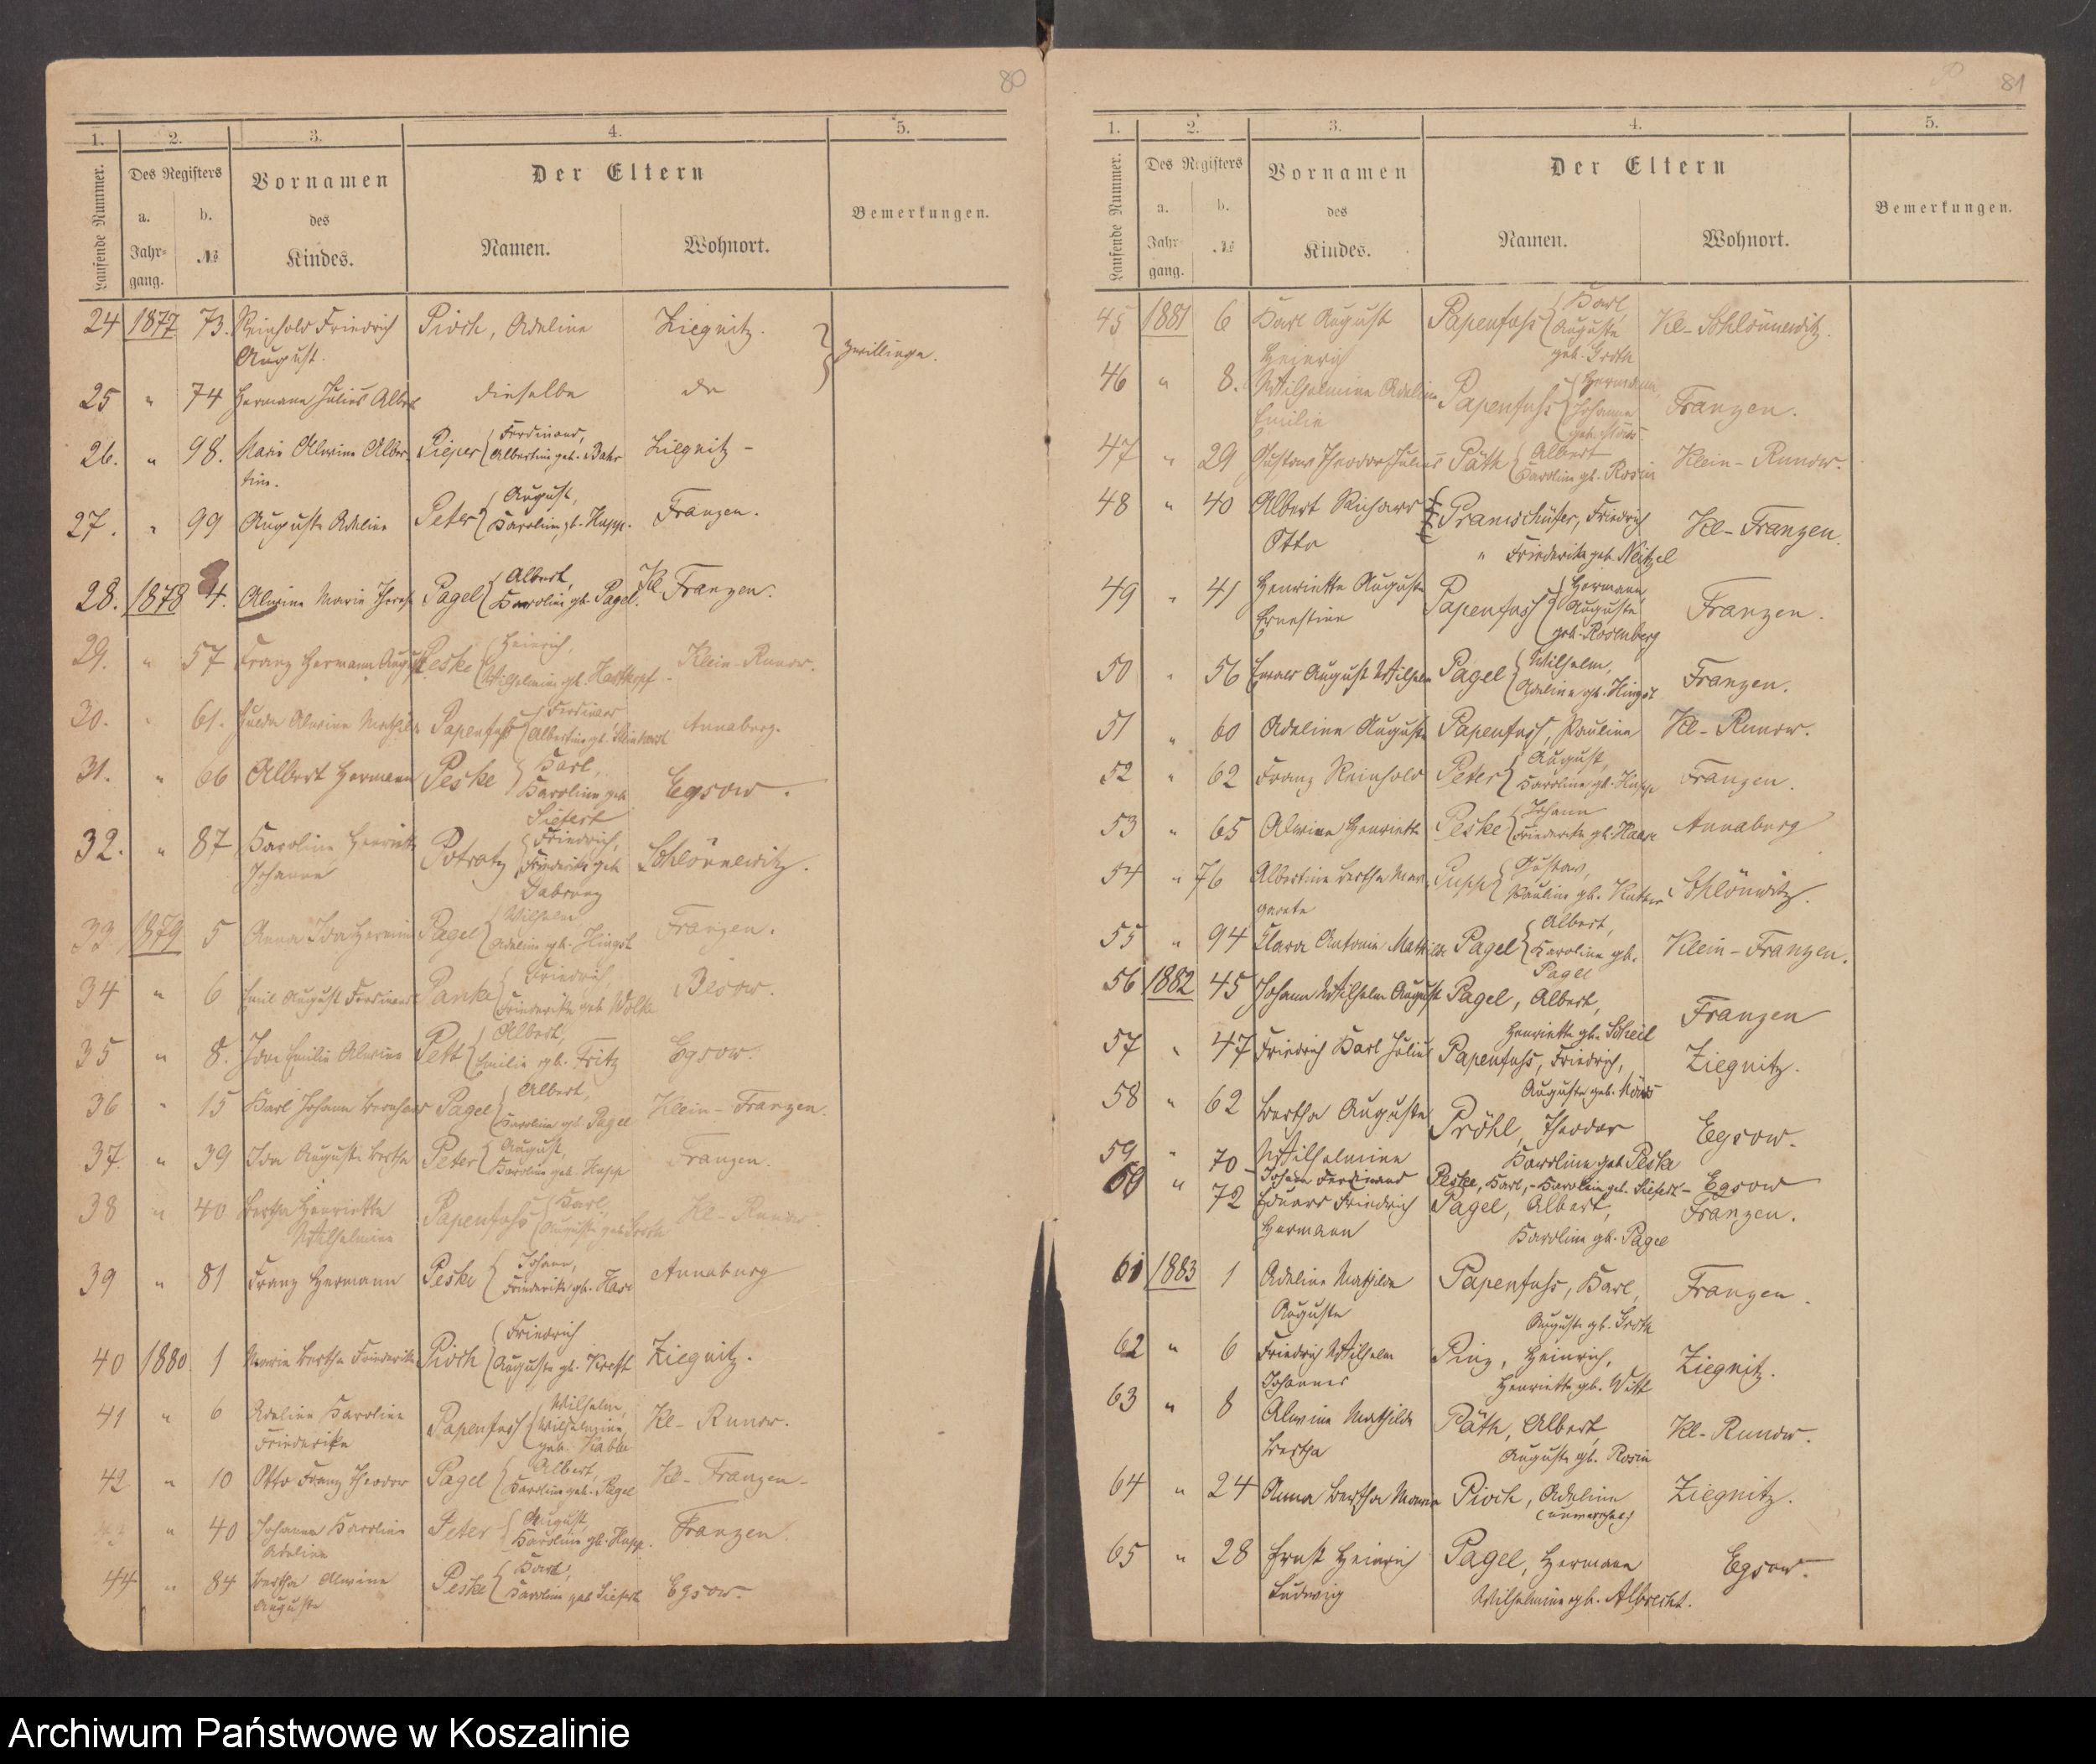 80
1. 2. 3. 4. 5.
Laufende Nummer. Des Registers Vornamen Der Eltern Bemerkungen.
a. b. des
Jahr- № Kindes. Namen. Wohnort.
gang.
24 1877 73. Reinhold Friedrich Pioch, Adeline Ziegnitz. Zwillinge.
August.
25 " 74 Hermann Julius Albert dieselbe do
26. " 98. Marie Alwine Alber- Pieper Ferdinand, Ziegnitz -
tine. Albertine geb. Bahr
27. " 99 Auguste Adeline Peter August, Franzen.
Karoline gb. Hupp.
28. 1878 4. Alwine Marie Therese Pagel Albert, Kl Franzen.
Karoline gb. Pagel.
29. " 57 Franz Hermann August Peske Heinrich, Klein-Runow.
Wilhelmine gb.
30. " 61. Hulda Alwine Mathilde Papenfuß Ferdinand Annaberg.
Albertine gb.
31. " 66 Albert Hermann Peske Karl, Egsow.
Karoline geb
Siefert
32. " 87 Karoline Henriette Potratz Friedrich, Schlönnewitz.
Johanne Friederike geb
33. 1879 5 Anna Ida Hermine Pagel Wilhelm Franzen.
Adeline gb. Hingst
34 " 6 Emil August Ferdinand Panke Friedrich, Besow.
Friederike geb Wölke
35 " 8. Ida Emilie Alwine Pett Albert, Egsow.
Emilie gb. Fritz
36 " 15 Karl Johann Bernhard Pagel Albert, Klein-Franzen.
Karoline gb. Pagel
37. " 39 Ida Auguste Bertha Peter August, Franzen.
Karoline geb. Hupp
38 " 40 Bertha Henriette Papenfuhs Karl, Kl-Runow.
Wilhelmine Auguste geb Groth
39 " 81 Franz Hermann Peske Johann, Annaburg
Friederike gb. Haase
40 1880 1 Marie Bertha Friederike Pioch Friedrich Ziegnitz.
Auguste gb. Kreft
41 " 6 Adeline Karoline Papenfuß Wilhelm, Kl- Runow.
Friederike Wilhelmine,
geb.
42 " 10 Otto Franz Theodor Pagel Albert, Kl- Franzen-
Karoline geb. Pagel
" 40 Johanna Karoline Peter August, Franzen.
Adeline Karoline gb. Hupp.
44 " 84 Bertha Alwine Peske Karl, Egsow.
Auguste Karoline geb Siefert
P 81
1. 2. 3. 4. 5.
Laufende Nummer. Des Registers Vornamen Der Eltern Bemerkungen.
a. b. des
Jahr- № Kindes. Namen. Wohnort.
gang.
45 1881 6 Karl August Papenfuhs Karl, Kl-Schlönnewitz.
Heinrich Auguste
geb. Groth
46 " 8. Wilhelmine Adeline Papenfuhs Hermann, Franzen.
Emilie Johanne
47 " 29 Gustav Theodor Julius Päth Albert Klein-Runow.
Karoline gb. Rosin
48 " 40 Albert Richard Pramschüfer, Friedrich Kl-Franzen.
Otto " Friederike geb. Neitzel
49 " 41 Henriette Auguste Papenfuß Hermann, Franzen.
Ernestine Auguste
geb. Rosenberg
50 " 56 Ewald August Wilhelm Pagel Wilhelm, Franzen.
Adeline gb. Hingst
51 " 60 Adeline Auguste Papenfuß, Pauline Kl-Runow.
52 " 62 Franz Reinhold Peter August, Franzen.
Karoline gb. Hupp
53 " 65 Alwine Henriette Peske Johann Annaburg
Friederike gb. Haase
54 " 76 Albertine Bertha Mar- Pupp Gustav, Schlönwitz.
garete Pauline gb.
55 " 94 Clara Antonie Mathilde Pagel Albert, Klein-Franzen.
Karoline gb.
Pagel
56 1882 45 Johann Wilhelm August Pagel, Albert, Franzen
Henriette gb. Scheil
57 " 47 Friedrich Karl Julius Papenfuhs, Friedrich, Ziegnitz.
Auguste geb.
58 " 62 Bertha Auguste Pröhl, Theodor Egsow.
Wilhelmine Karoline geb Peske
59 " 70 - Johann Ferdinand Peske, Karl, - Karoline geb. Siefert - Egsow
60 " 72 Eduard Friedrich Pagel, Albert, Franzen.
Hermann Karoline gb. Pagel
61 1883 1 Adeline Mathilde Papenfuhs, Karl, Franzen.
Auguste Auguste gb. Groth
62 " 6 Friedrich Wilhelm Pinz, Heinrich, Ziegnitz.
Johannes Henriette gb. Witt
63 " 8 Alwine Mathilde Päth, Albert, Kl-Runow.
Bertha Auguste gb. Rosin
64 " 24 Anna Bertha Marie Pioch, Adeline Ziegnitz.
(unverehel.)
65 " 28 Ernst Heinrich Pagel, Hermann Egsow.
Ludwig Wilhelmine gb. Albrecht.
Archiwum Państwowe w Koszalinie